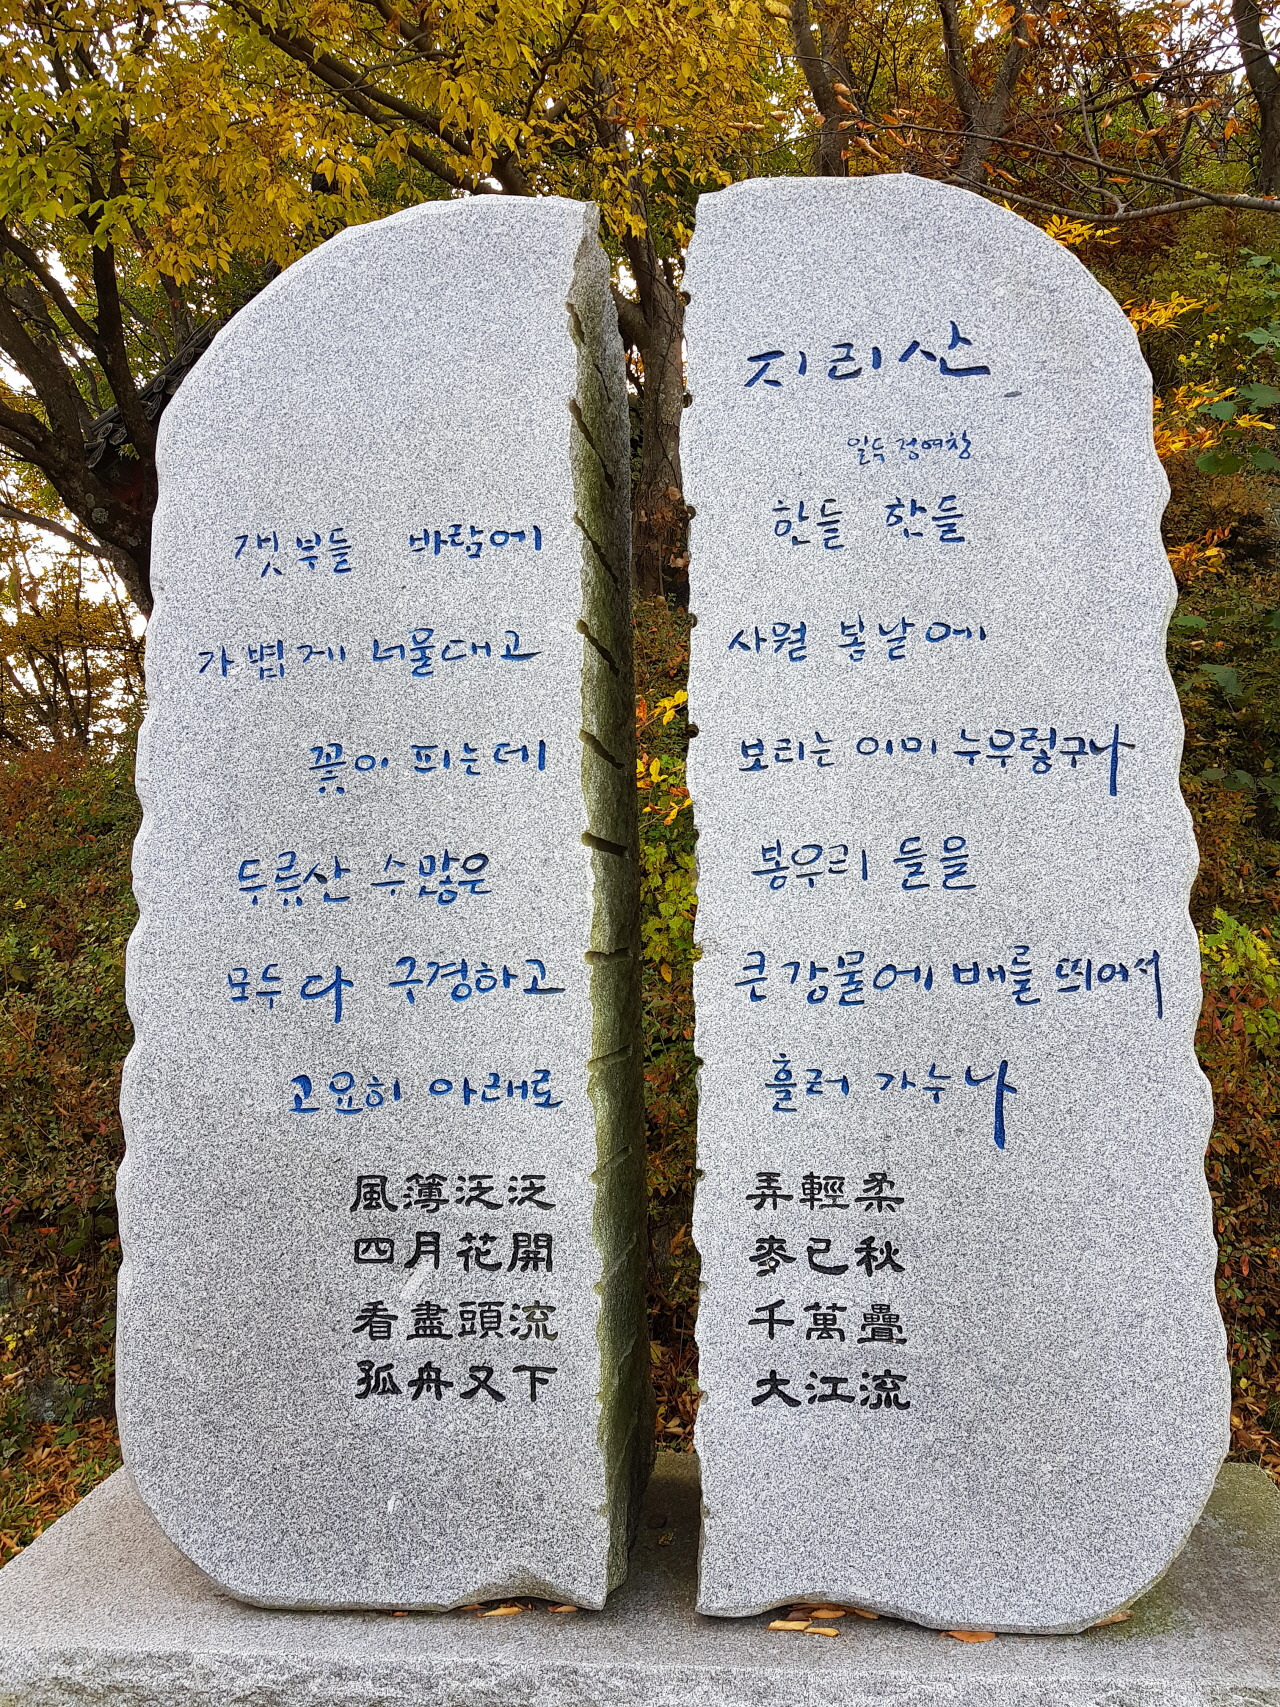 지리산
일두 정여창
갯부들 바람에 한들 한들
가볍게 너울대고 사월 봄날에
꽃이 피는데 보리는 이미 누우렇구나
두류산 수많은 봉우리 들을
모두 다 구경하고 큰 강물에 배를 띄어서
고요히 아래로 흘러 가누나
風簿泛泛 弄輕柔
四月花開 麥已秋
看盡頭流 千萬疊
孤舟又下 大江流